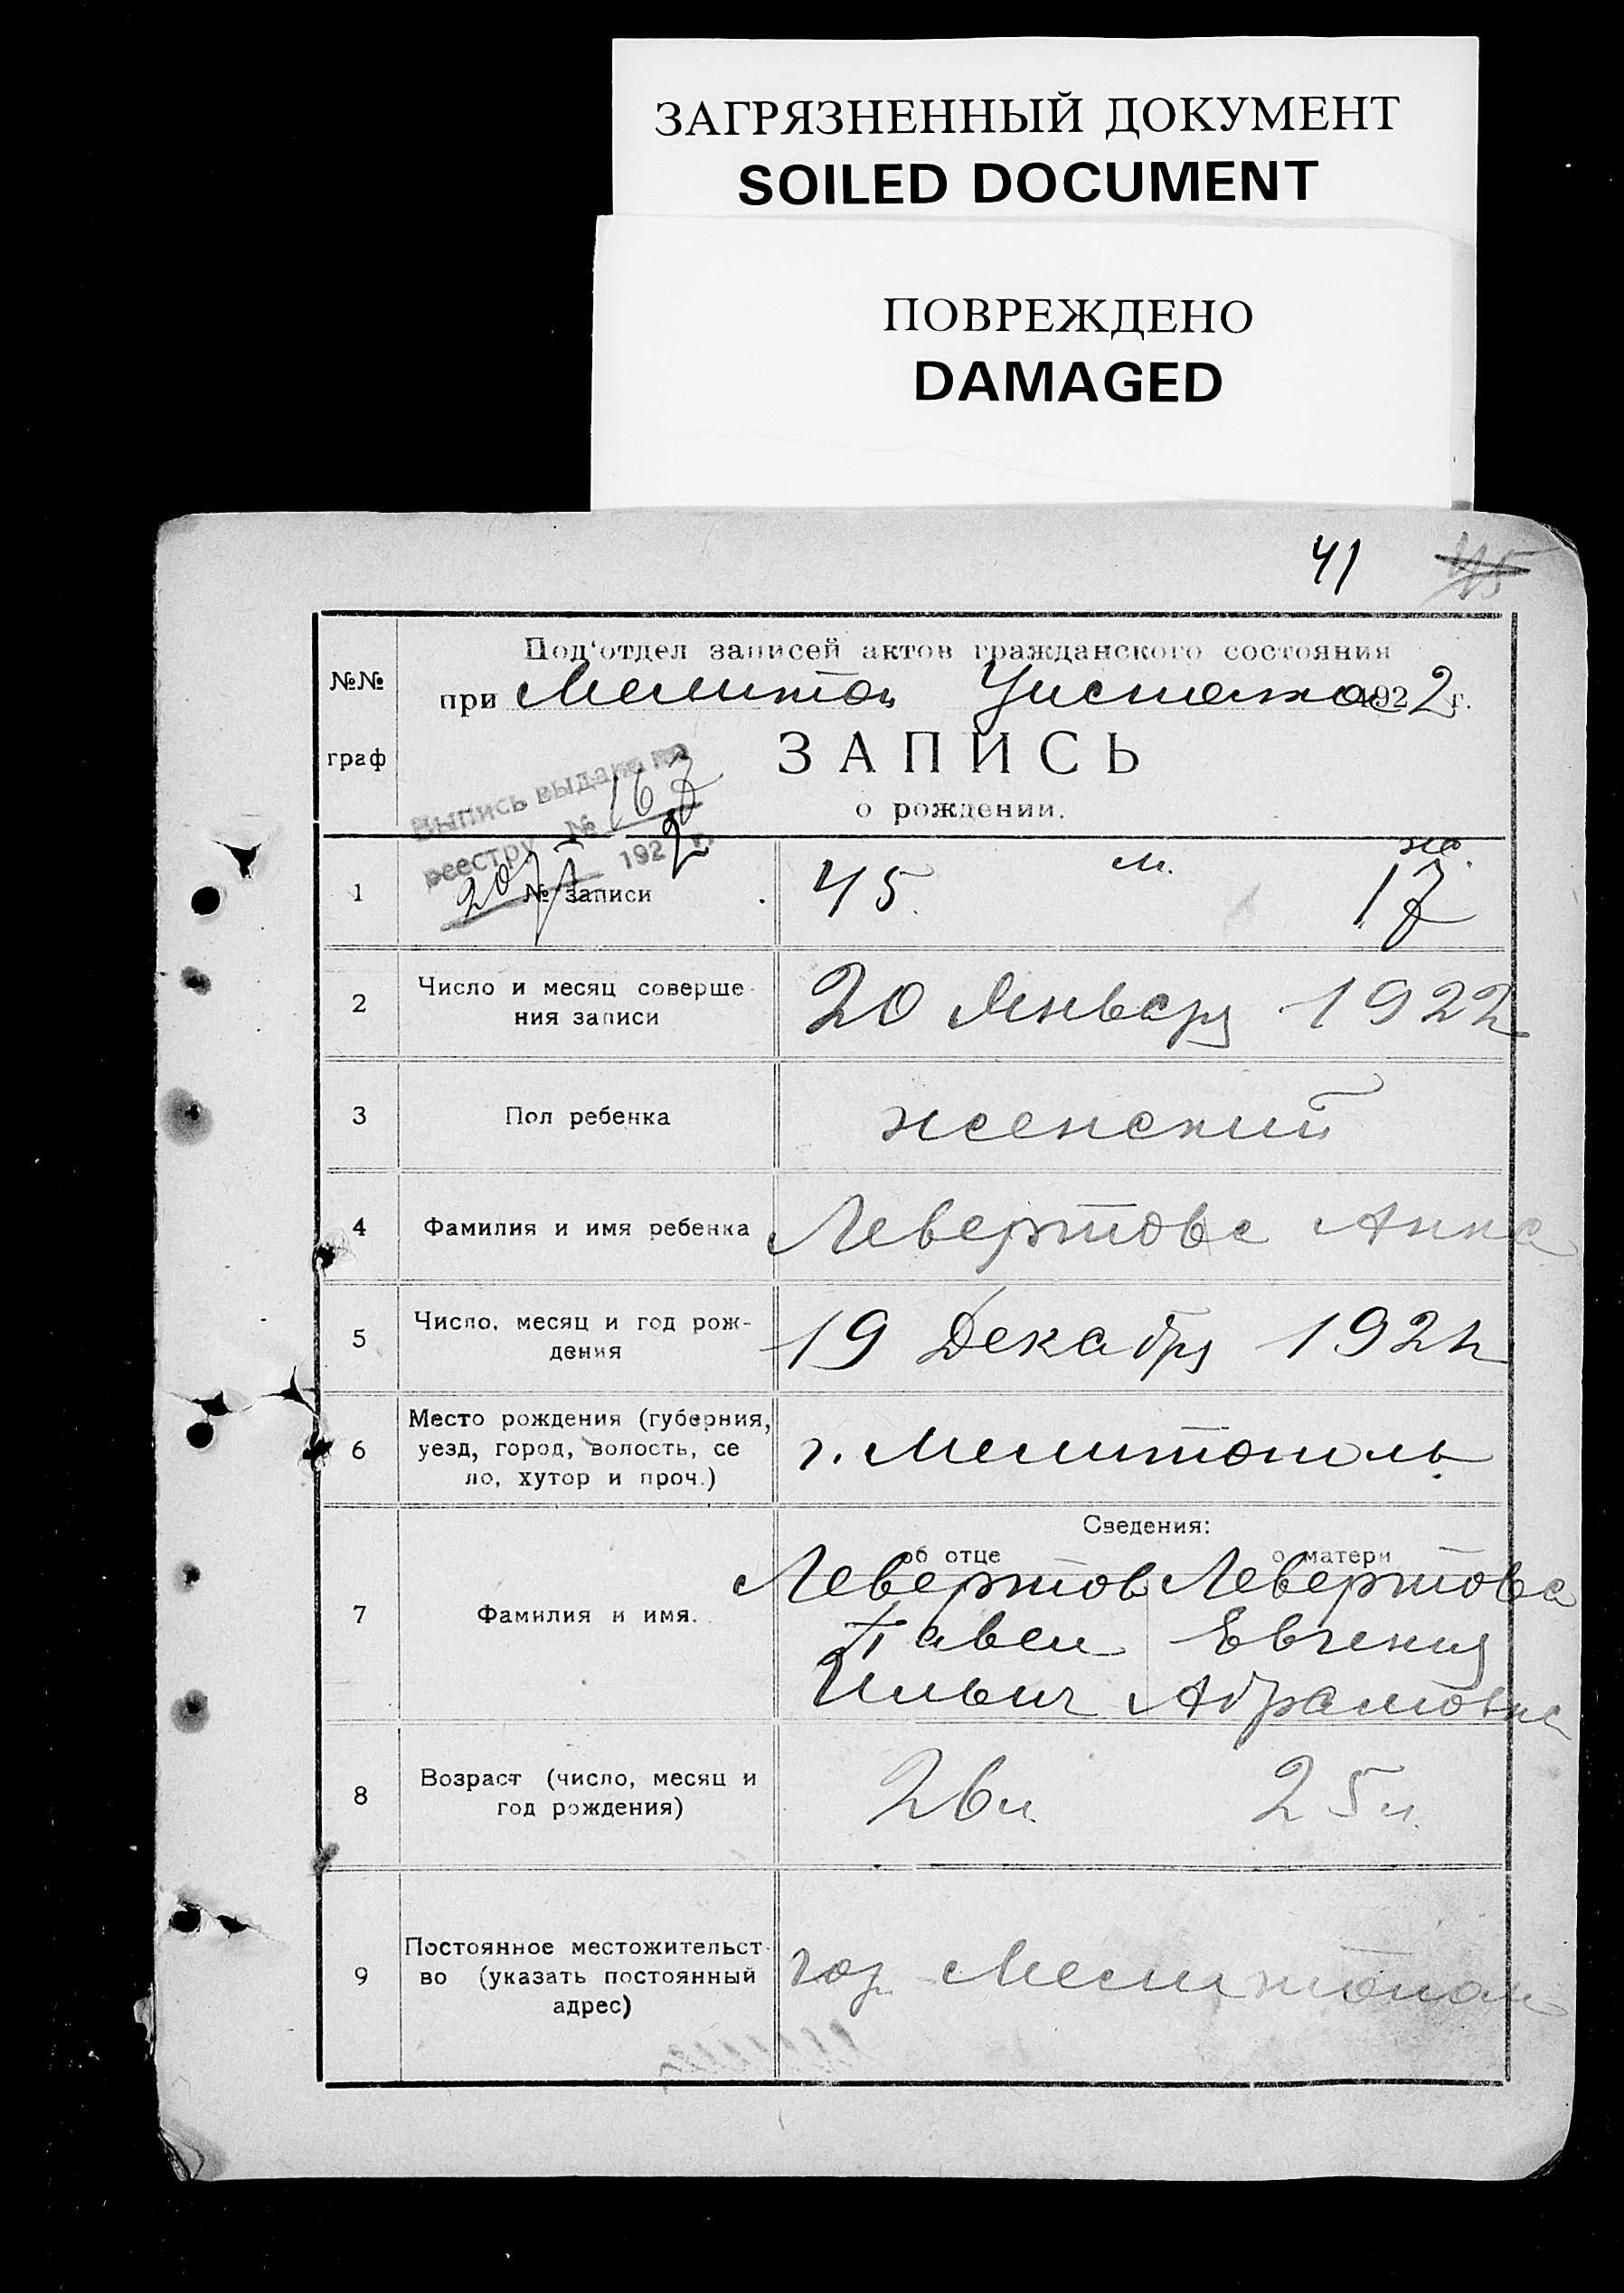 ЗАГРЯЗНЕННЫЙ ДОКУМЕНТ
SOILED DOCUMENT
ПОВРЕЖДЕНО
DAMAGED
41 45
№№ граф
Под'отдел записей актов гражданского состояния
при Мелитоп. 1922 г.
ЗАПИСЬ
о рождении.
Выпись выдана по
реестру № 167
20/I 1922 г.
1 № записи 45. м. ж. 17
2 Число и месяц соверше-
ния записи 20 Января 1922
3 Пол ребенка женский
4 Фамилия и имя ребенка Левертова Анна
5 Число, месяц и год рож-
дения 19 Декабря 192
6 Место рождения (губерния,
уезд, город, волость, се
ло, хутор и проч.) г. Мелитополь
Сведения:
об отце о матери
7 Фамилия и имя. Левертов Левертова
Павел Евгения
Ильич Абрамовна
8 Возраст (число, месяц и
год рождения) 26 л. 25 л.
9 Постоянное местожительст-
во (указать постоянный
адрес) гор. Мелитополь